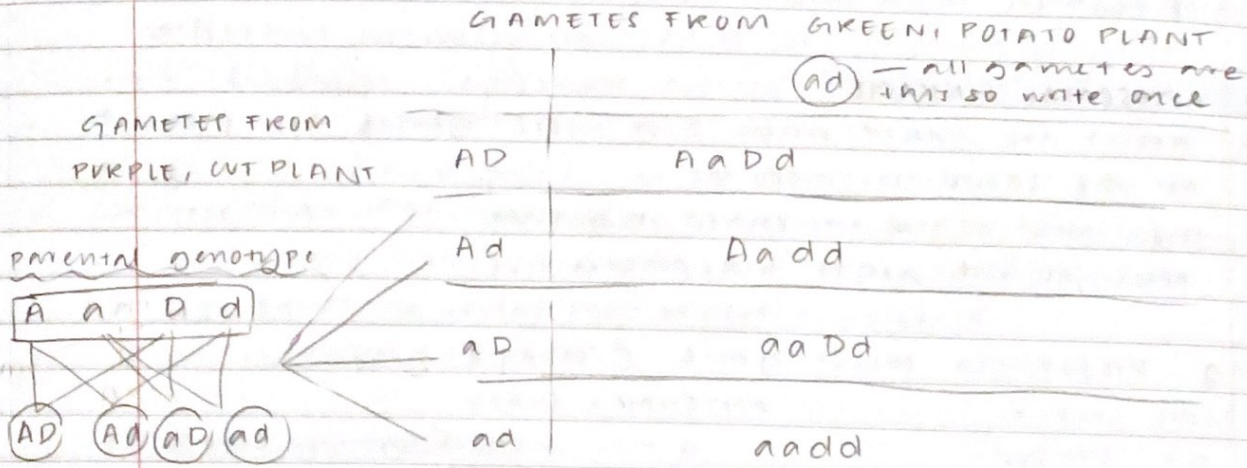 GAMETES FROM GREEN, POTATO PLANT
ad — all gametes are
this so write once
GAMETES FROM
PURPLE, CUT PLANT
AD AaDd
parental genotype
Ad Aadd
A a D d
aD aaDd
AD Ad aD ad
ad aadd